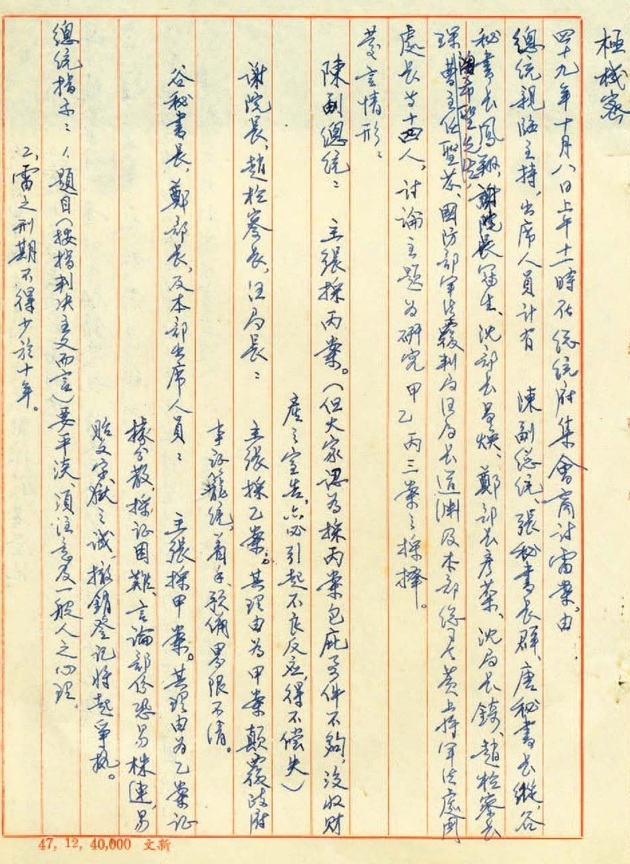 極機密
四十九年十月八日上午十一時在總統府集會商討雷案,由
總統親臨主持,出席人員計有 陳副總統、張秘書長群、唐秘書長縱、谷
秘書長鳳翔、謝院長冠生、沈部長昌煥、鄭部長彥棻、沈局長錡、趙檢察長
琛、曹主任聖芬、陶希聖先生、國防部軍法覆判局汪局長道淵及本部總司令黃上將軍法處周
處長等十四人,討論主題為研究甲乙丙三案之採擇。
發言情形:
陳副總統: 主張採丙案。(但大家認為採丙案包庇要件不夠,沒收財
產之宣告,亦必引起不良反應,得不償失)
謝院長、趙檢察長、汪局長: 主張採乙案。其理由為甲案顛覆政府
事證籠統,着手、預備界限不清。
谷秘書長、鄭部長、及本部出席人員: 主張採甲案。其理由為乙案證
據分散,採證困難,言論部份恐易株連,易
貽文字獄之譏,撤銷登記將起爭執。
總統指示:1、題目(按指判決主文而言)要平淡,須注意及一般人之心理。
2、雷之刑期不得少於十年。
47, 12, 40,000 文新